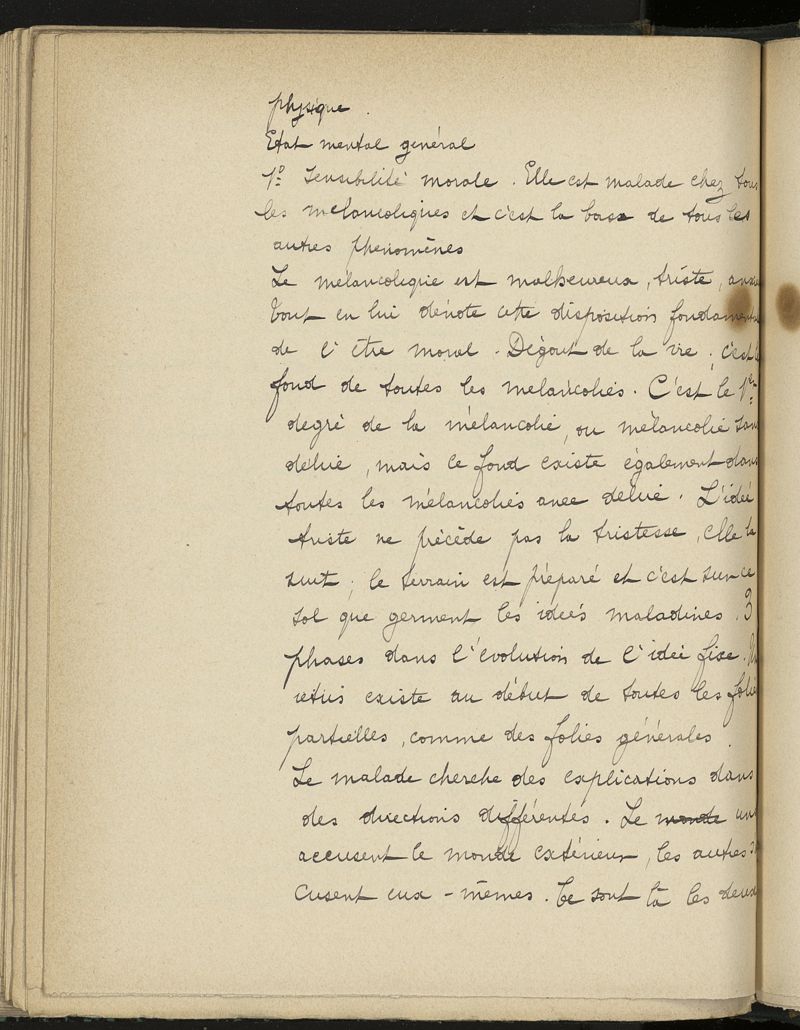 physique.
Etat mental général
1º sensibilité morale. Elle est malade chez tous
les mélancoliques et c'est la base de tous les
autres phenomènes
Le mélancolique est malheureux, triste,
Tout en lui dénote cette disposition
de l'être moral. Dégout de la vie. c'est
fond de toutes les mélancolies. C'est le 1er
degré de la mélancolie, ou mélancolie
délire, mais ce fond existe également dans
toutes les mélancolies avec délire. L'idée
triste ne précède pas la tristesse, elle la
suit; le terrain est préparé et c'est sur ce
sol que germent les idées maladives. 3
phases dans l'évolution de l'idée fixe.
existe au début de toutes les folies
partielles, comme des folies générales.
Le malade cherche des explications dans
des directions différentes. Le monde
accusent le monde extérieur, les autres
cusent eux-mêmes. Ce sont là les deux